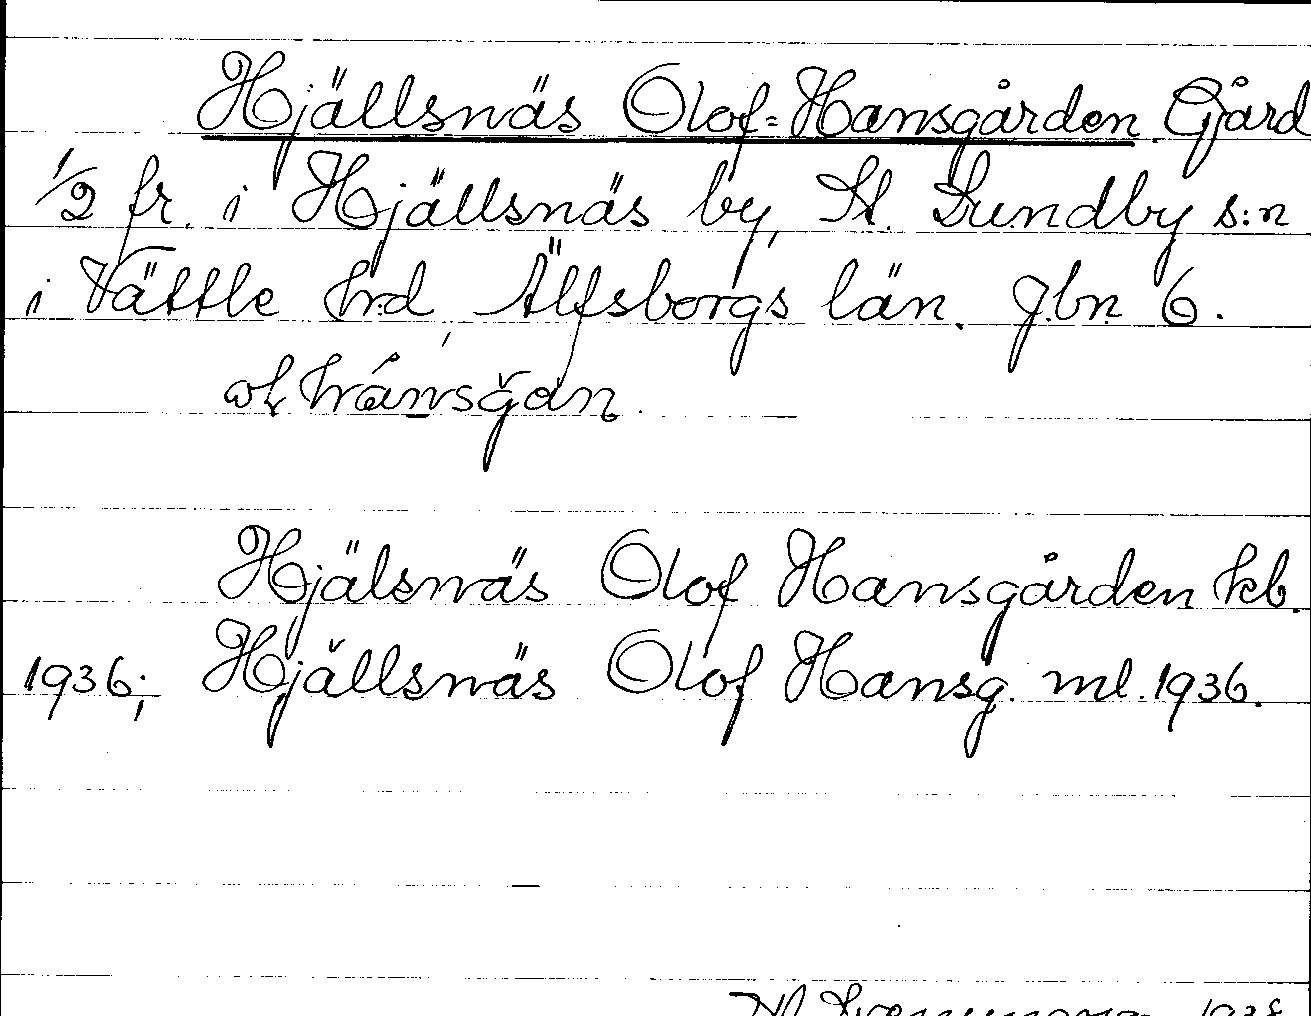 Hjällsnäs Olof-Hansgården Gård
1/2 fr. i Hjällsnäs by, St. Lundby s:n
i Vättle hrd, Älfsborgs län. Jbn 6.
Hjälsnäs Olof Hansgården kb.
1936; Hjällsnäs Olof Hansg. ml. 1936.